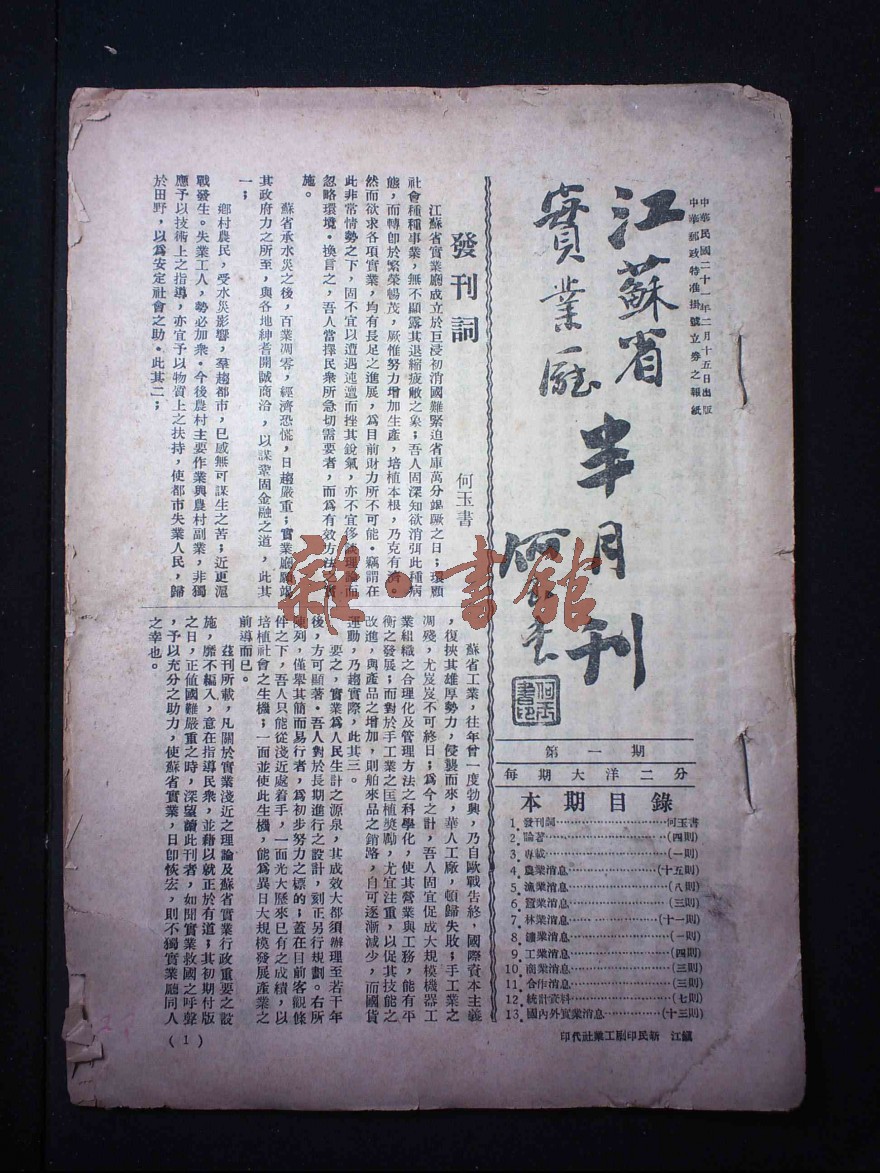 中華民國二十一年二月十五日出版
中華郵政特准掛號立券之報紙
江蘇省
實業廳
半月刊
何玉書
第一期
每期大洋二分
本期目錄
1. 發刊詞……何玉書
2. 論著……(四則)
3. 專載……(一則)
4. 農業消息……(十五則)
5. 漁業消息……(八則)
6. 蠶業消息……(三則)
7. 林業消息……(十一則)
8. 鑛業消息……(一則)
9. 工業消息……(四則)
10. 商業消息……(三則)
11. 合作消息……(三則)
12. 統計資料……(七則)
13. 國內外實業消息……(十三則)
鎭江 新民印刷工業社代印
發刊詞
何玉書
江蘇省實業廳成立於巨浸初消國難緊迫省庫萬分竭蹶之日；環顧
社會種種事業，無不顯露其退縮疲敝之象；吾人固深知欲消弭此種病
態，而轉卽於繁榮暢茂，厥惟努力增加生產，培植本根，乃克有濟。
然而欲求各項實業，均有長足之進展，爲目前財力所不可能。竊謂在
此非常情勢之下，固不宜以遭遇迍邅而挫其銳氣，亦不宜侈談理論而
忽略環境。換言之，吾人當擇民衆所急切需要者，而爲有效方法之實
施。
蘇省承水災之後，百業凋零，經濟恐慌，日趨嚴重；實業廳願竭
其政府力之所至，與各地紳耆開誠商洽，以謀鞏固金融之道，此其
一；
鄉村農民，受水災影響，羣趨都市，已感無可謀生之苦；近更滬
戰發生。失業工人，勢必加衆。今後農村主要作業與農村副業，非獨
應予以技術上之指導，亦宜予以物質上之扶持，使都市失業人民，歸
於田野，以爲安定社會之助。此其二；
蘇省工業，往年曾一度勃興，乃自歐戰告終，國際資本主義
，復挾其雄厚勢力，侵襲而來，華人工廠，頓歸失敗；手工業之
凋殘，尤岌岌不可終日；爲今之計，吾人固宜促成大規模機器工
業組織之合理化及管理方法之科學化，使其營業與工務，能有平
衡之發展；而對於手工業之匡植獎勵，尤宜注重，以促其技能之
改進，與產品之增加，則舶來品之銷路，自可逐漸減少，而國貨
運動，乃趨實際，此其三。
要之，實業爲人民生計之源泉，其成效大都須辦理至若干年
後，方可顯著。吾人對於長期進行之設計，刻正另行規劃。右所
陳列，僅舉其簡而易行者，爲初步努力之標的；蓋在目前客觀條
件之下，吾人只能從淺近處着手，一面光大歷來已有之成績，以
培植社會之生機；一面並使此生機，能爲異日大規模發展產業之
前導而已。
茲刊所載，凡關於實業淺近之理論及蘇省實業行政重要之設
施，靡不編入，意在指導民衆，並藉以就正於有道；其初期付版
之日，正値國難嚴重之時，深望讀此刊者，如聞實業救國之呼聲
，予以充分之助力，使蘇省實業，日卽恢宏，則不獨實業廳同人
之幸也。
(1)
雜·書館